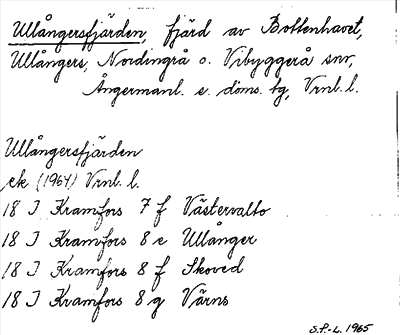 Ullångersfjärden, fjärd av Bottenhavet,
Ullångers, Nordingrå o. Vibyggerå snr,
Ångermanl. s. doms. tg, Vrnl. l.
Ullångersfjärden
ek (1964) Vrnl. l.
18 I Kramfors 7 f Västervalto
18 I Kramfors 8 e Ullånger
18 I Kramfors 8 f Skoved
18 I Kramfors 8 g Värns
S.P.-L. 1965